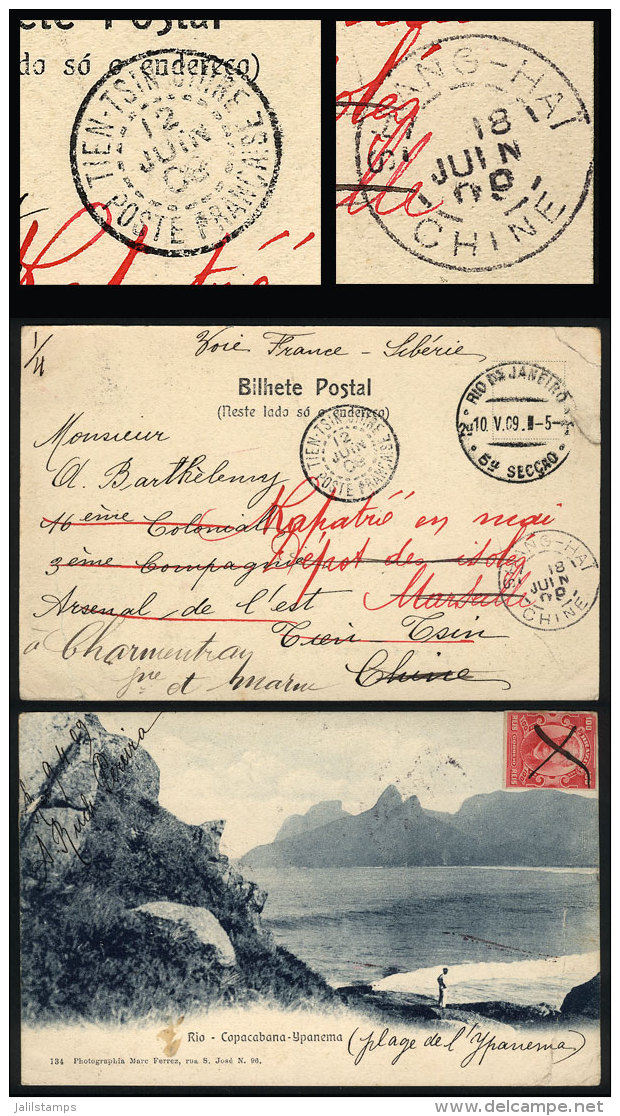 Bilhete Postal
do só o endereço)
TIEN-TSIN CHINE
12
JUIN
09
POSTE FRANÇAISE
Rapatrié
SHANG-HAI
18
JUIN
09
CHINE
isolés
1/4
Voie France - Sibérie
Bilhete Postal
(Neste lado só o endereço)
RIO DE JANEIRO
10.V.09.
5ª SECÇÃO
TIEN-TSIN CHINE
12
JUIN
09
POSTE FRANÇAISE
Monsieur
A. Barthèlemy
16ème Colonial
Rapatrié en mai
3ème Compagnie
Dépot des isolés
SHANG-HAI
18
JUIN
09
CHINE
Arsenal de l'est
Marseille
Tien Tsin
à Charmentray
Chine
Sne et Marne
100
REIS
REIS
Rio - Copacabana-Ypanema
(plage de l'Ypanema)
134 Photographia Marc Ferrez, rua S. José N. 96.
jalilstamps
delcampe.net